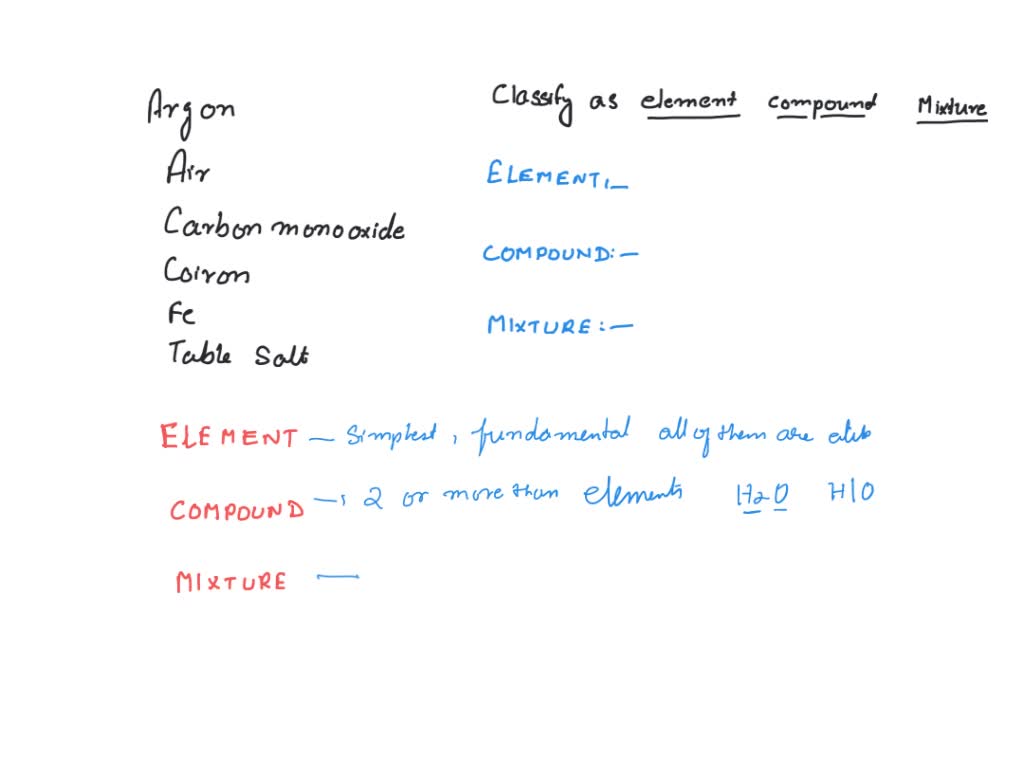 Argon
Classify as element compound Mixture
Air
ELEMENT:-
Carbon monooxide
COMPOUND:-
Coiron
Fe
MIXTURE:-
Table Salt
ELEMENT - Simplest, fundamental all of them are
COMPOUND -, 2 or more than elements H2O H/O
MIXTURE -